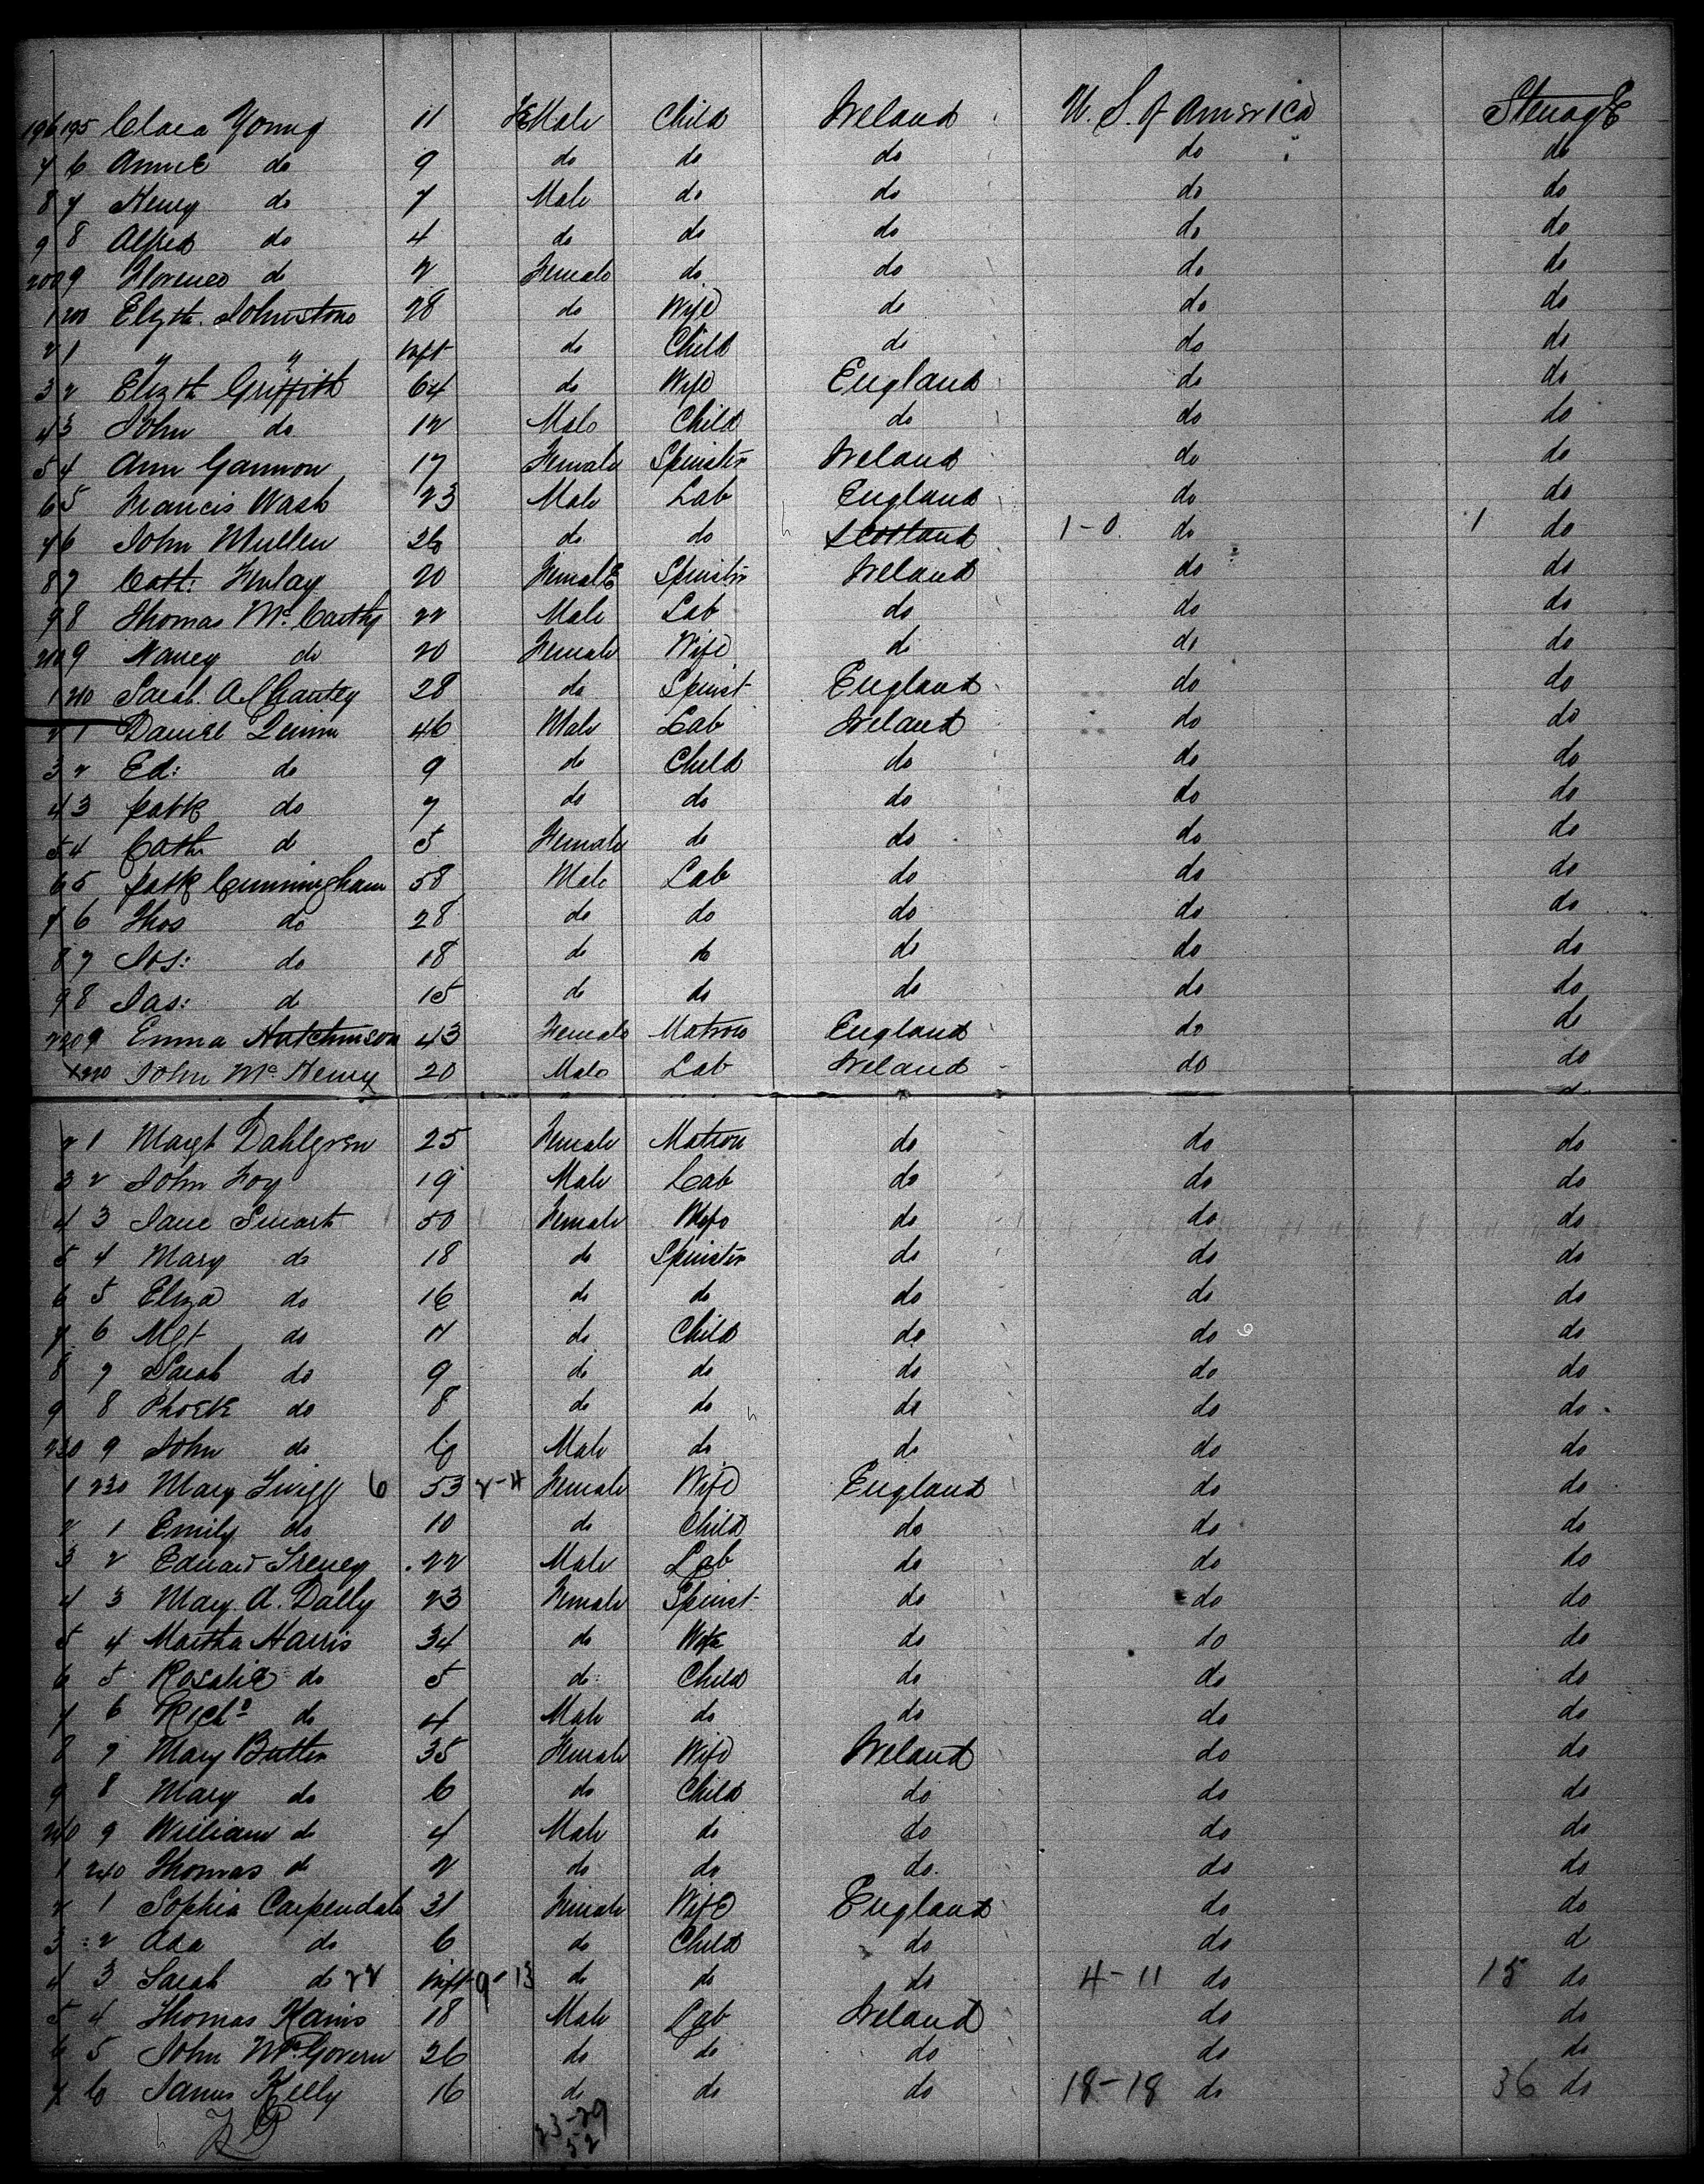 196 195 Clara Young 11 FEMale Child Ireland U. S. of America SteuagE
7 6 Annie do 9 do do do do do
8 7 Henry do 7 Male do do do do
9 8 Alfred do 4 do do do do do
200 9 Florence do 2 Female do do do do
1 200 Elizth. Johnstone 28 do Wife do do do
2 1 " " Inft do Child do do do
3 2 Elizth Griffith 64 do Wife England do do
4 3 John do 12 Male Child do do do
5 4 Ann Gannon 17 Female Spinster Ireland do do
6 5 Francis Wash 23 Male Lab England do do
7 6 John Mullen 26 do do Scotland 1-0 do 1 do
8 7 Cath: Finlay 20 Female Spinster Ireland do do
9 8 Thomas Mc Carthy 22 Male Lab do do do
210 9 Nancy do 20 Female Wife do do do
1 210 Sarah A. Chantey 28 do Spinst England do do
2 1 Daniel Quinn 46 Male Lab Ireland do do
3 2 Ed: do 9 do Child do do do
4 3 Patk do 7 do do do do do
5 4 Cath do 5 Female do do do do
6 5 Patk Cunningham 58 Male Lab do do do
7 6 Thos do 28 do do do do do
8 7 Jos: do 18 do do do do do
9 8 Jas: do 15 do do do do do
220 9 Emma Hutchinson 43 Female Matron England do do
1 220 John Mc Henry 20 Male Lab Ireland do do
2 1 Margt Dahlgren 25 Female Matron do do do
3 2 John Foy 19 Male Lab do do do
4 3 Jane Smart 50 Female Wife do do do
5 4 Mary do 18 do Spinster do do do
6 5 Eliza do 16 do do do do do
7 6 Mgt do 11 do Child do do do
8 7 Sarah do 9 do do do do do
9 8 Phoebe do 8 do do do do do
230 9 John do 6 Male do do do do
1 230 Mary Twigg 6 53 2-4 Female Wife England do do
2 1 Emily do 10 do Child do do do
3 2 Edward 22 Male Lab do do do
4 3 Mary A. Dally 23 Female Spinst do do do
5 4 Martha Harris 34 do Wife do do do
6 5 Rosalie do 5 do Child do do do
7 6 Richd do 4 Male do do do do
8 7 Mary Butler 35 Female Wife Ireland do do
9 8 Mary do 6 do Child do do do
240 9 William do 4 Male do do do do
1 240 Thomas do 2 do do do do do
2 1 Sophia Carpendale 31 Female Wife England do do
3 2 Ada do 6 do Child do do d
4 3 Sarah do 22 Inft 9-13 do do do 4-11 do 15 do
5 4 Thomas 18 Male Lab Ireland do do
6 5 John McGovern 26 do do do do do
7 6 James Kelly 16 do do do 18-18 do 36 do
23-29
52